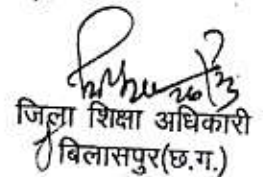 जिला शिक्षा अधिकारी
बिलासपुर(छ.ग.)